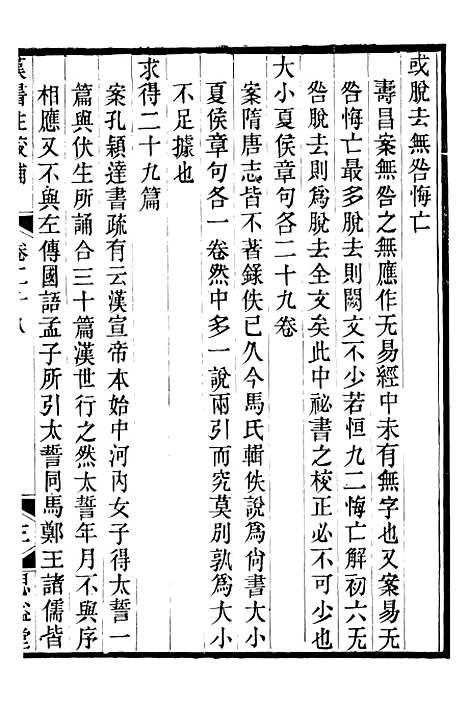 或脫去無咎悔亡
壽昌案無咎之無應作无易經中未有無字也又案易无
咎悔亡最多脫去則闕文不少若恒九二悔亡解初六无
咎脫去則爲脫去全文矣此中祕書之校正必不可少也
大小夏侯章句各二十九卷
案隋唐志皆不著錄佚已久今馬氏輯佚說爲尙書大小
夏侯章句各一卷然中多一說兩引而究莫別孰爲大小
不足據也
求得二十九篇
案孔穎達書疏有云漢宣帝本始中河內女子得太誓一
篇與伏生所誦合三十篇漢世行之然太誓年月不與序
相應又不與左傳國語孟子所引太誓同馬鄭王諸儒皆
漢書注校補 卷二十八 三 思益堂